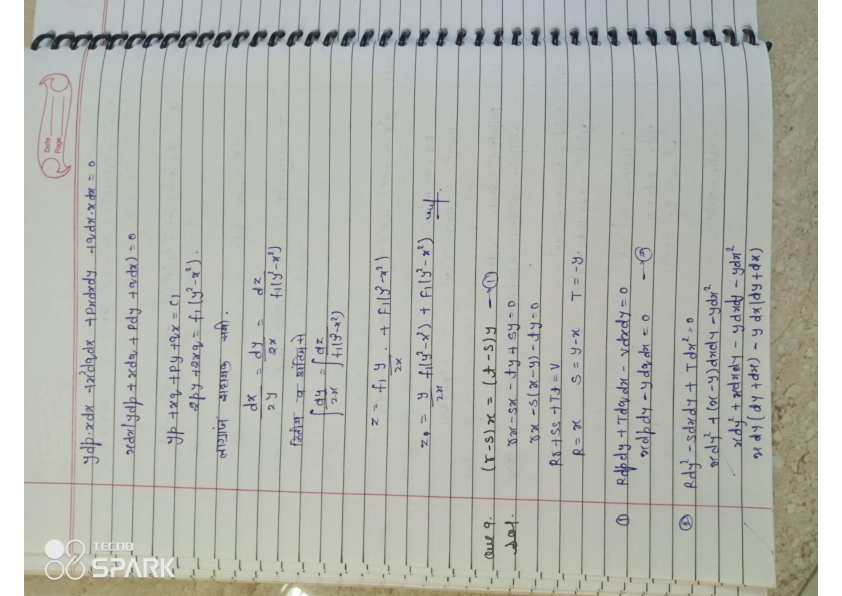 Date
Page
ydp·xdx + x²dqdx + pxdxdy + qdx·xdx = 0
xdx(ydp + xdq + pdy + qdx) = 0
yp + xq + py + qx = c1
2py + 2xq = f1(y²-x²).
लाग्रांज सहायक समी.
dx/2y = dy/2x = dz/f1(y²-x²)
द्वितीय व अंतिम से
∫dy/2x = ∫dz/f1(y²-x²)
z = f1 y/2x . + F1(y²-x²)
z = y/2x f1(y²-x²) + F1(y²-x²)
Que 9. (r-s)x = (t-s)y —①
Sol. rx - sx - ty + sy = 0
rx - s(x-y) - ty = 0
Rr + Ss + Tt = V
R = x S = y-x T = -y.
① Rdpdy + Tdqdx - vdxdy = 0
xdpdy - ydqdx = 0 —②
② Rdy² - Sdxdy + Tdx² = 0
xdy² + (x-y)dxdy - ydx²
xdy² + xdxdy - ydxdy - ydx²
xdy(dy+dx) - ydx(dy+dx)
TECNO
SPARK